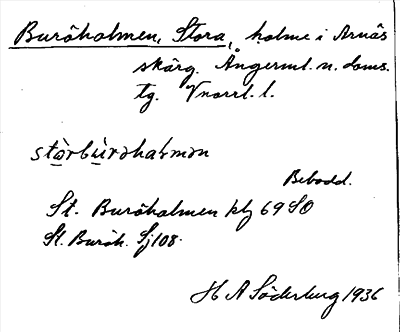 Buröholmen, Stora, holme i Arnäs
skärg. Ångerml. n. doms.
tg. Vnorrl. l.
stòrbùrəhaləmən
Bebodd.
St. Buröholmen kbl 69 SO
St. Buröh. Sj 108.
H A Söderberg 1936